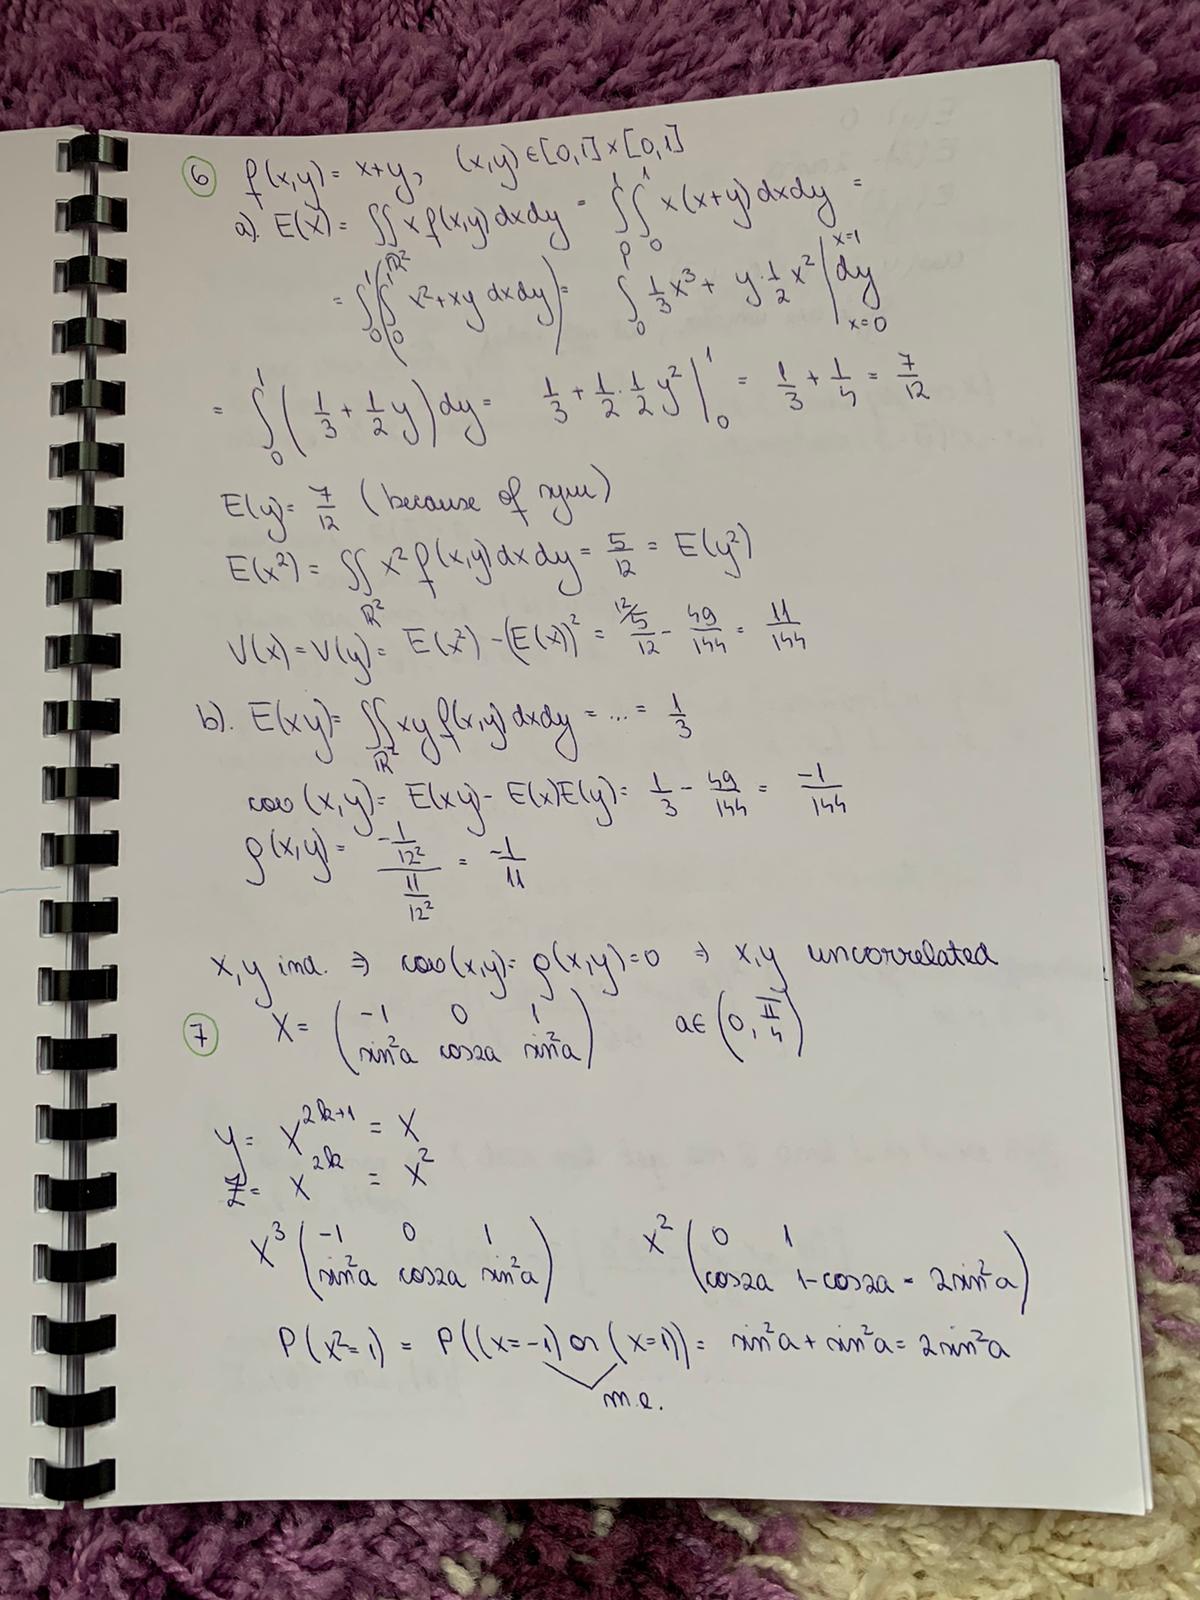 6 f(x,y) = x+y, (x,y) ∈ [0,1] × [0,1]
a). E(X) = ∬_{ℝ²} x f(x,y) dxdy = ∫_0^1 ∫_0^1 x(x+y) dxdy =
= ∫_0^1 (∫_0^1 x² + xy dxdy) = ∫_0^1 1/3 x³ + y · 1/2 x² |_{x=0}^{x=1} dy
= ∫_0^1 (1/3 + 1/2 y) dy = 1/3 + 1/2 · 1/2 y² |_0^1 = 1/3 + 1/4 = 7/12
E(y) = 7/12 (because of sym)
E(x²) = ∬_{ℝ²} x² f(x,y) dxdy = 5/12 = E(y²)
V(x) = V(y) = E(x²) - (E(x))² = 12/ 5/12 - 49/144 = 11/144
b). E(xy) = ∬_{ℝ²} xy f(x,y) dxdy = ... = 1/3
cov (x,y) = E(xy) - E(x)E(y) = 1/3 - 49/144 = -1/144
ρ(x,y) = (-1/12²)/(11/12²) = -1/11
x,y ind. ⇒ cov(x,y) = ρ(x,y) = 0 ⇒ x,y uncorrelated
7 X = ( -1 0 1 ) a ∈ (0, π/4)
( sin²a cos2a sin²a )
y = X^{2k+1} = X
Z = X^{2k} = X²
X³ ( -1 0 1 ) X² ( 0 1 )
( sin²a cos2a sin²a ) ( cos2a 1-cos2a = 2sin²a )
P(X²=1) = P((X=-1) or (X=1)) = sin²a + sin²a = 2sin²a
m.e.